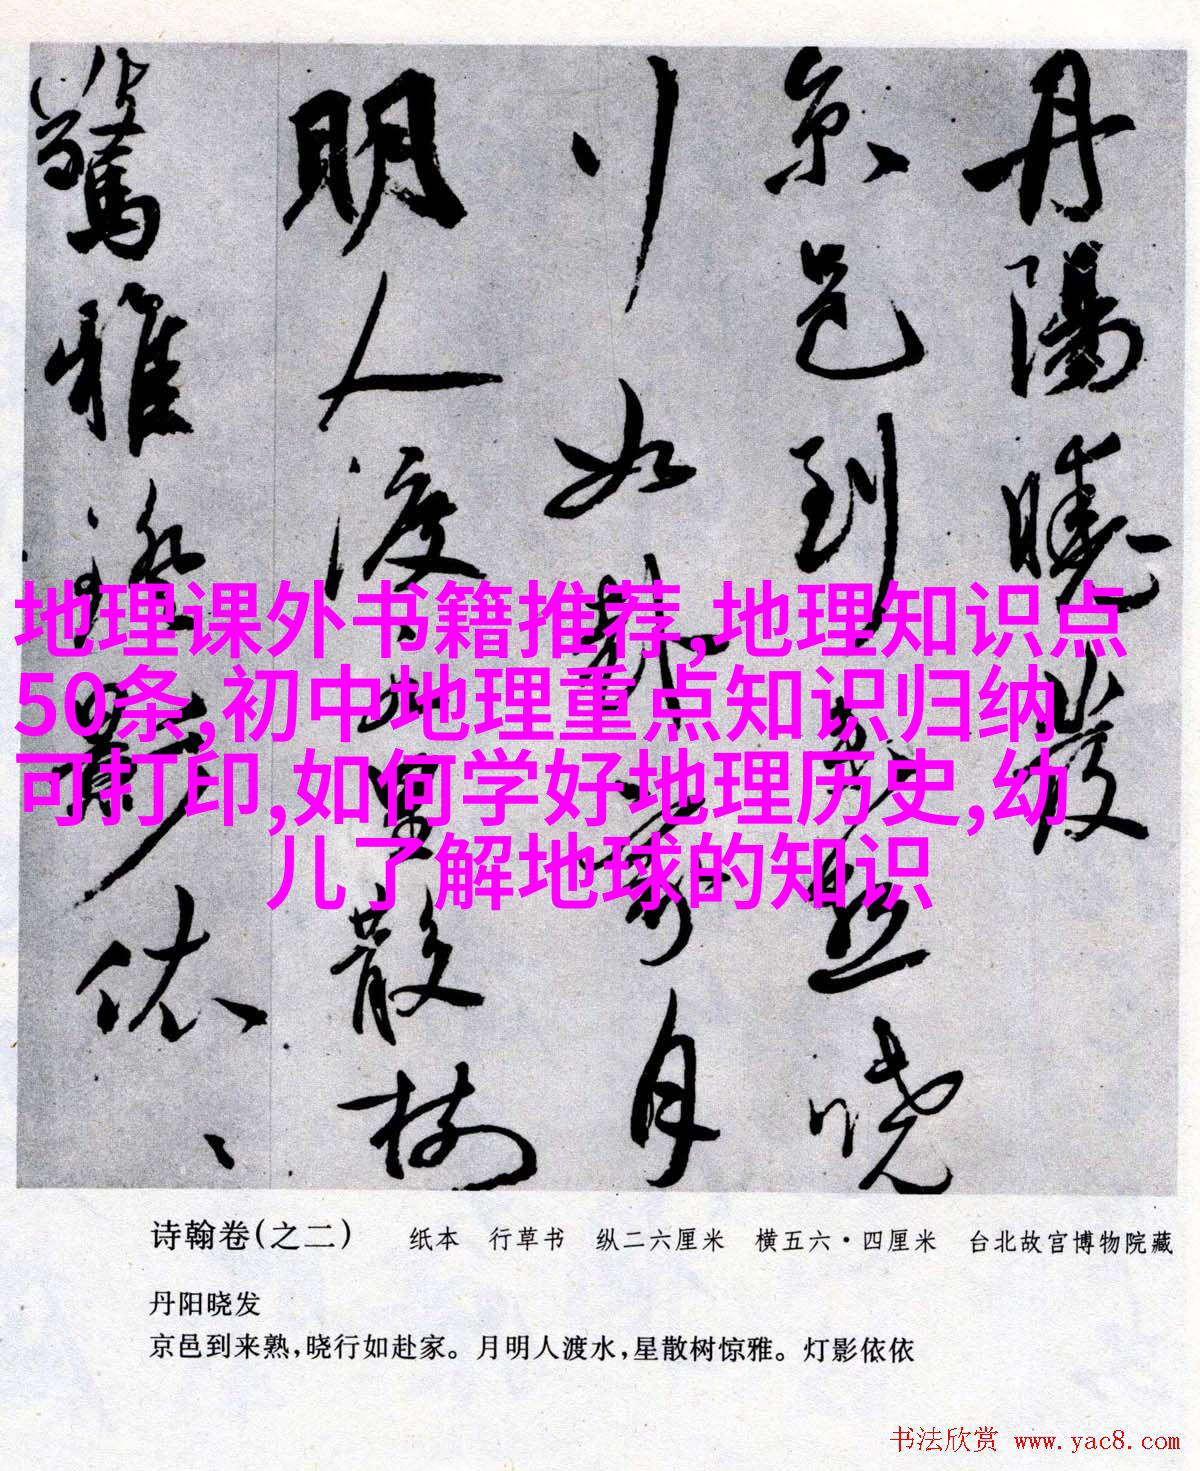 丹陽曉發
京邑到来熟晓
行如赴家月
明人渡水星散樹
驚雅燈影依、、
地理课外书籍推荐,地理知识点
50条,初中地理重点知识归纳
可打印,如何学好地理历史,幼
儿了解地球的知识
诗翰卷(之二) 纸本 行草书 纵二六厘米 横五六·四厘米 台北故宫博物院藏
丹阳晓发
京邑到来熟,晓行如赴家。月明人渡水,星散树惊雅。灯影依依
书法欣赏 www.yac8.com